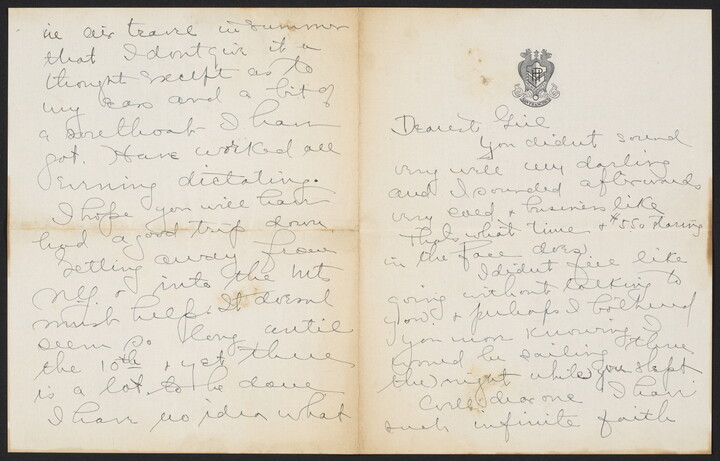 Dearest Girl
You didn't sound
very well my darling
and I sounded afterwards
very cold + business like
Thats what time + $5.50 staring
in the face does
I didn't feel like
going without talking to
you. + perhaps I bothered
you more knowing I
would be sailing thru
the night while you slept
Well dear one I have
such infinite faith
in air travel in summer
that I dont give it a
thought except as to
my ears and a bit of
a sorethroat I have
got. Have worked all
evening dictating.
I hope you will have
had a good trip down
Getting away from
NY + into the Mt
must help. It doesnt
seem so long until
the 10th + yet there
is a lot to be done
I have no idea what